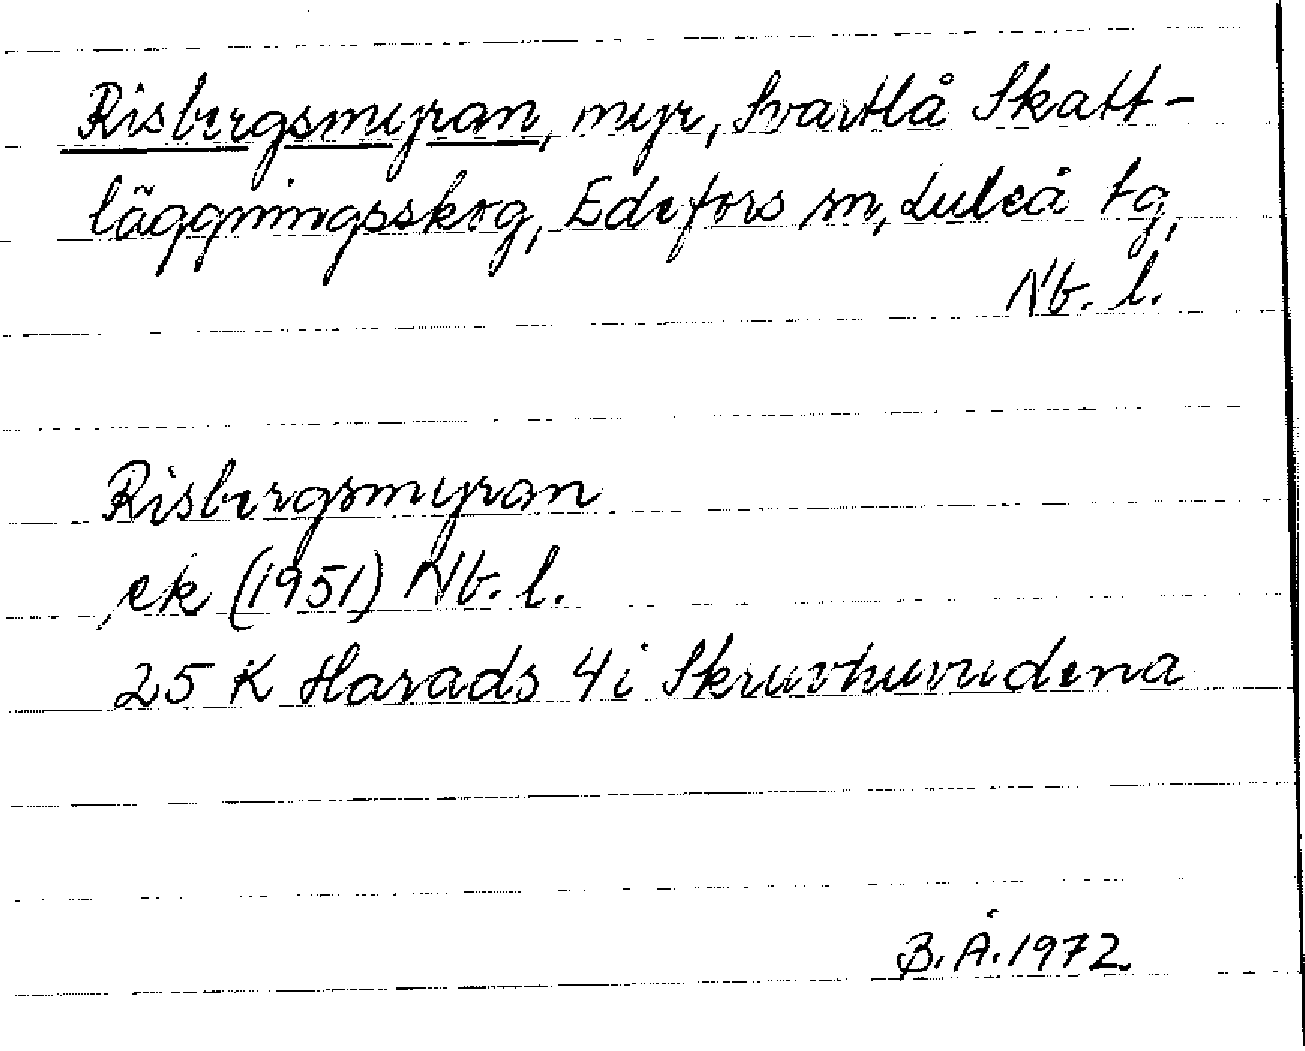 Risbergsmyran, myr, Svartlå Skatt-
läggningsskog, Edefors sn, Luleå tg,
Nb. l.
Risbergsmyran
ek (1951) Nb. l.
25 K Harads 4i Skruvhuvudena
B.Å.1972